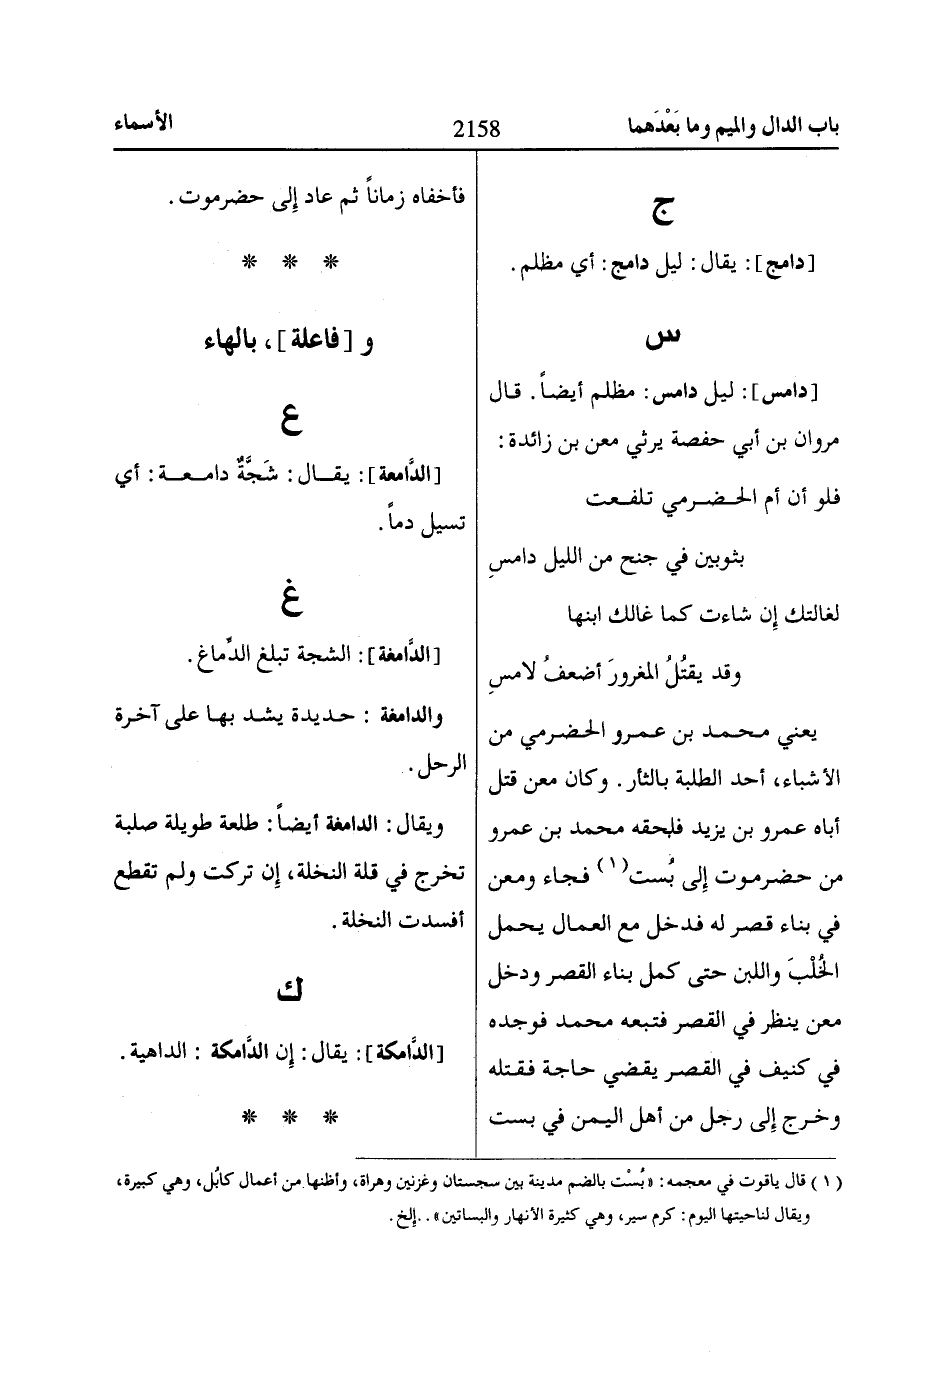 باب الدال والميم وما بَعْدَهما
2158
الأسماء
ج
[دامج]: يقال: ليل دامج: أي مظلم.
س
[دامس]: ليل دامس: مظلم أيضاً. قال
مروان بن أبي حفصة يرثي معن بن زائدة:
فلو أن أم الحضرمي تلفعت
بثوبين في جنح من الليل دامسِ
لغالتك إن شاءت كما غالك ابنها
وقد يقتُلُ المغرورَ أضعفُ لامسِ
يعني محمد بن عمرو الحضرمي من
الأشباء، أحد الطلبة بالثأر. وكان معن قتل
أباه عمرو بن يزيد فلحقه محمد بن عمرو
من حضرموت إلى بُست(١) فجاء ومعن
في بناء قصر له فدخل مع العمال يحمل
الخُلْبَ واللبن حتى كمل بناء القصر ودخل
معن ينظر في القصر فتبعه محمد فوجده
في كنيف في القصر يقضي حاجة فقتله
وخرج إلى رجل من أهل اليمن في بست
فأخفاه زماناً ثم عاد إلى حضرموت.
* * *
و [فاعلة]، بالهاء
ع
[الدَّامعة]: يقال: شَجَّةٌ دامعة: أي
تسيل دماً.
غ
[الدَّامغة]: الشجة تبلغ الدِّماغ.
والدامغة : حديدة يشد بها على آخرة
الرحل.
ويقال: الدامغة أيضاً: طلعة طويلة صلبة
تخرج في قلة النخلة، إن تركت ولم تقطع
أفسدت النخلة.
ك
[الدَّامكة]: يقال: إن الدَّامكة : الداهية.
* * *
(١) قال ياقوت في معجمه: «بُسْت بالضم مدينة بين سجستان وغزنين وهراة، وأظنها من أعمال كابُل، وهي كبيرة،
ويقال لناحيتها اليوم: كرم سير، وهي كثيرة الأنهار والبساتين»..إلخ.